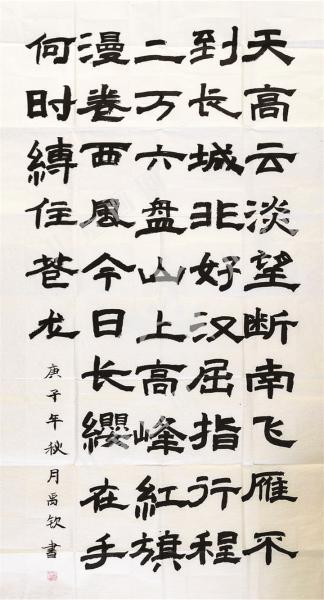 天高云淡望断南飞雁不
到长城非好汉屈指行程
二万六盘山上高峰紅旗
漫卷西風今日长纓在手
何时縛住苍龙
庚子年秋月禹钦書